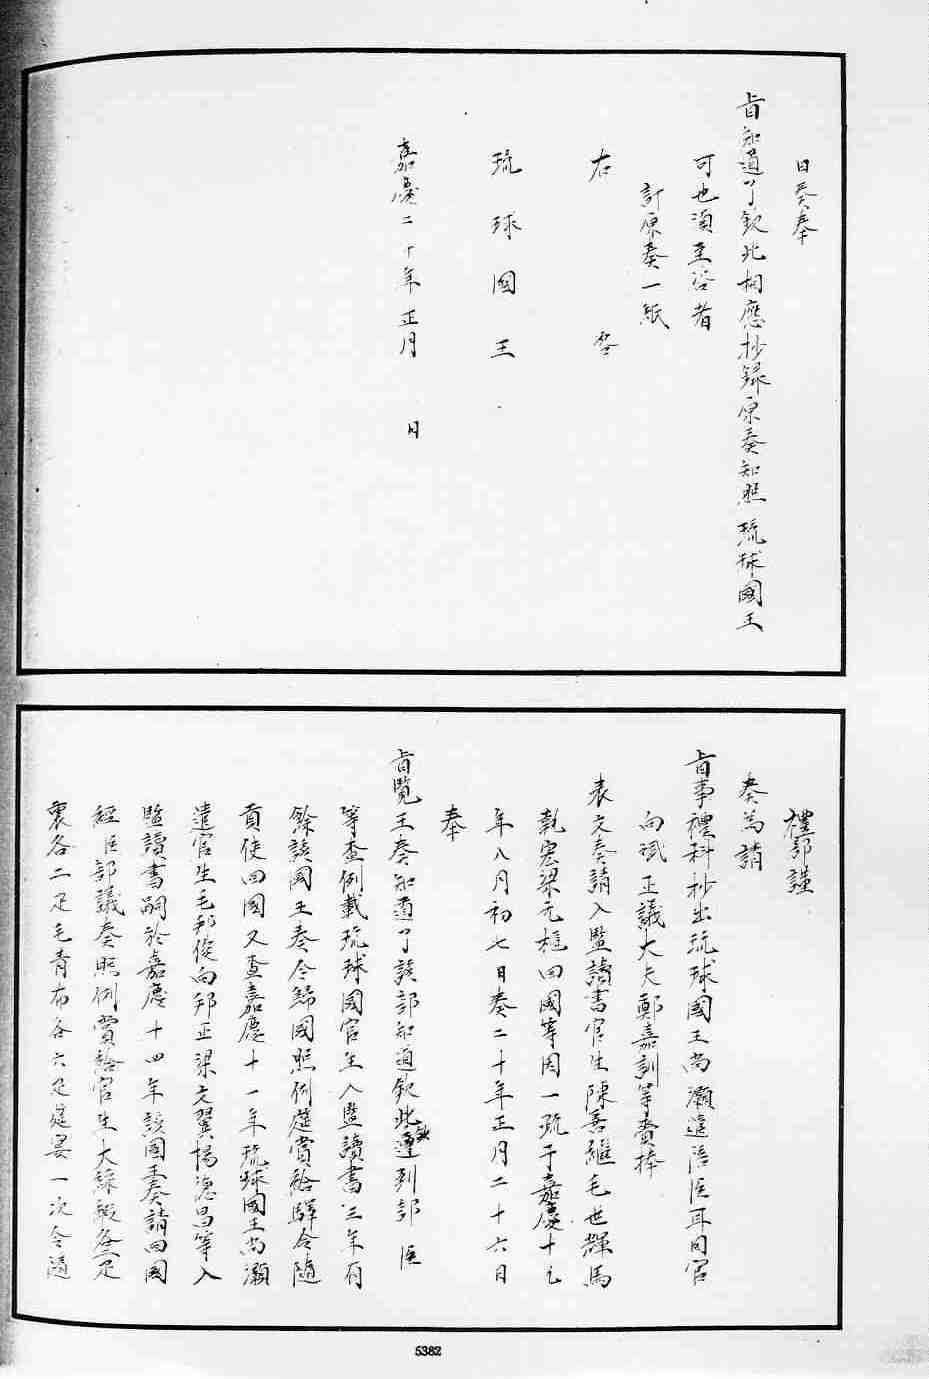 日奏奉
旨知道了欽此相應抄録原奏知照琉球國王
可也須至咨者
計原奏一紙
右咨
琉球國王
嘉慶二十年正月 日
禮部謹
奏為請
旨事禮科抄出琉球國王尚灝遣陪臣耳目官
向斌正議大夫鄭嘉訓等賫捧
表文奏請入監讀書官生陳善繼毛世輝馬
執宏梁元樞回國等因一疏于嘉慶十九
年八月初七日奏二十年正月二十六日
奉
旨覽王奏知道了該部知道欽此欽遵到部臣
等查例載琉球國官生入監讀書三年有
餘該國王奏令歸國照例筵賞給驛令隨
貢使回國又查嘉慶十一年琉球國王尚灝
遣官生毛邦俊向邦正梁文翼楊德昌等入
監讀書嗣於嘉慶十四年該國王奏請回國
經臣部議奏照例賞給官生大緞各二疋
裏各二疋毛青布各六疋筵宴一次令隨
5382